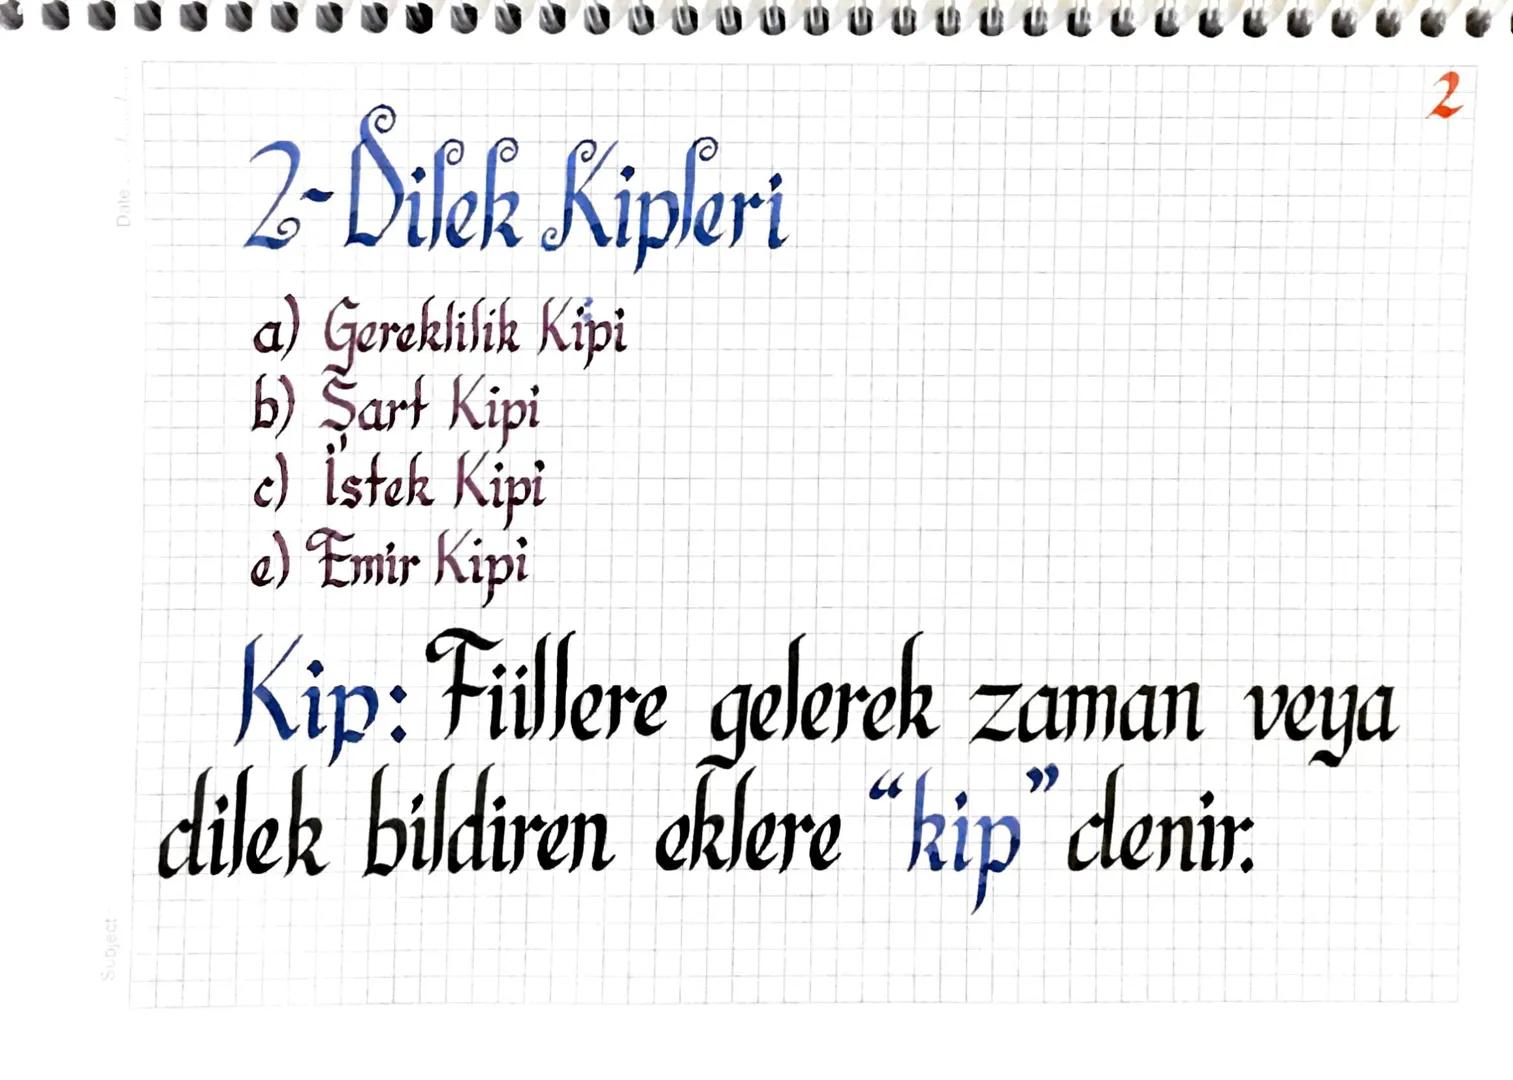 2
2-Dilek Kipleri
a) Gereklilik Kipi
b) Şart Kipi
c) İstek Kipi
e) Emir Kipi
Kip: Fiillere gelerek zaman veya
dilek bildiren eklere “kip” denir.
Date
Subject